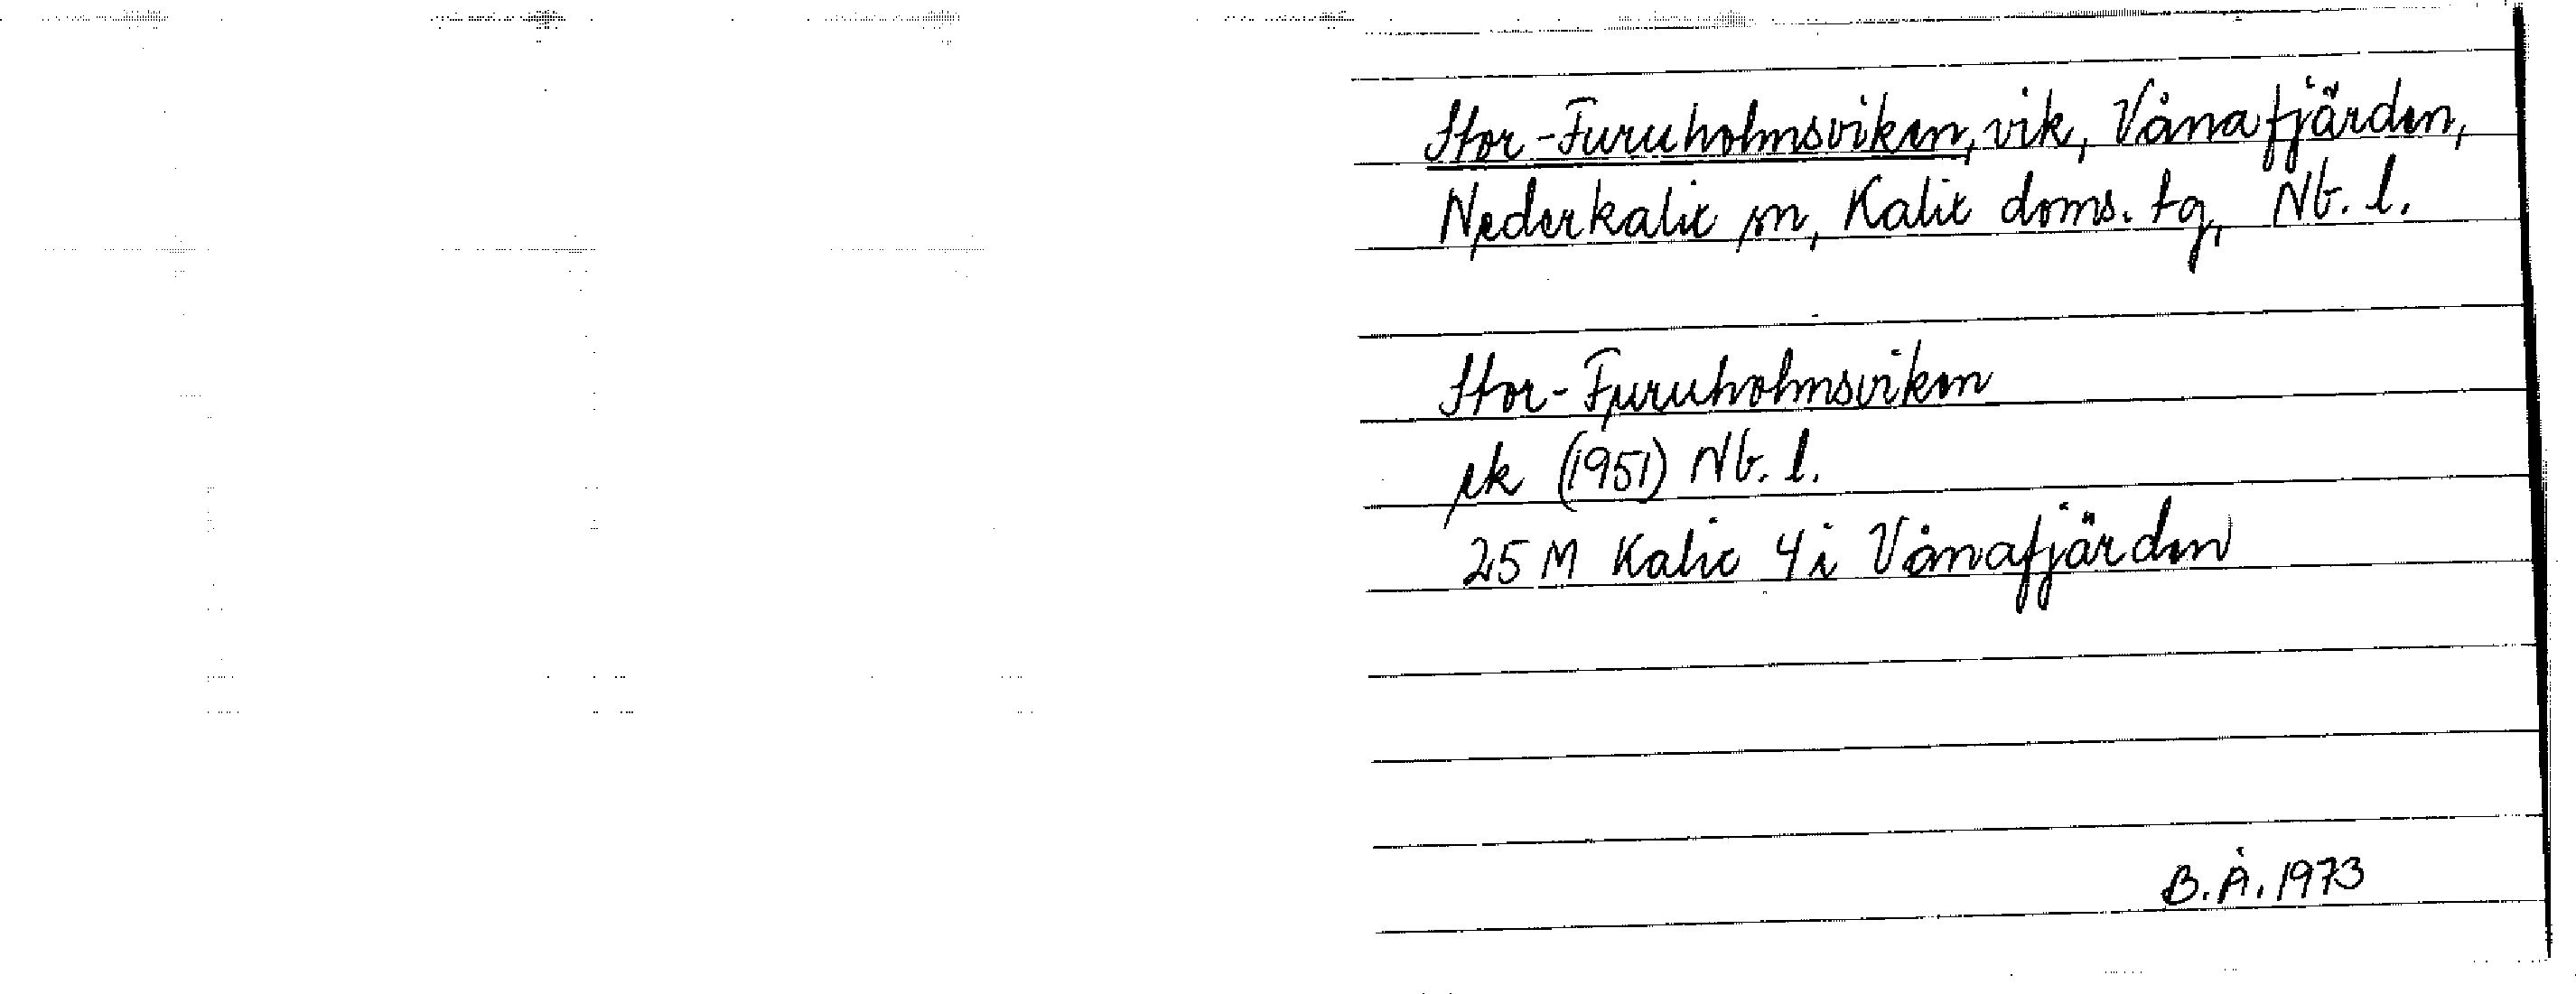 Stor-Furuholmsviken, vik, Vånafjärden,
Nederkalix sn, Kalix doms. tg, Nb. l.
Stor-Furuholmsviken
ek (1951) Nb. l.
25 M Kalix 4i Vånafjärden
B. Å. 1973